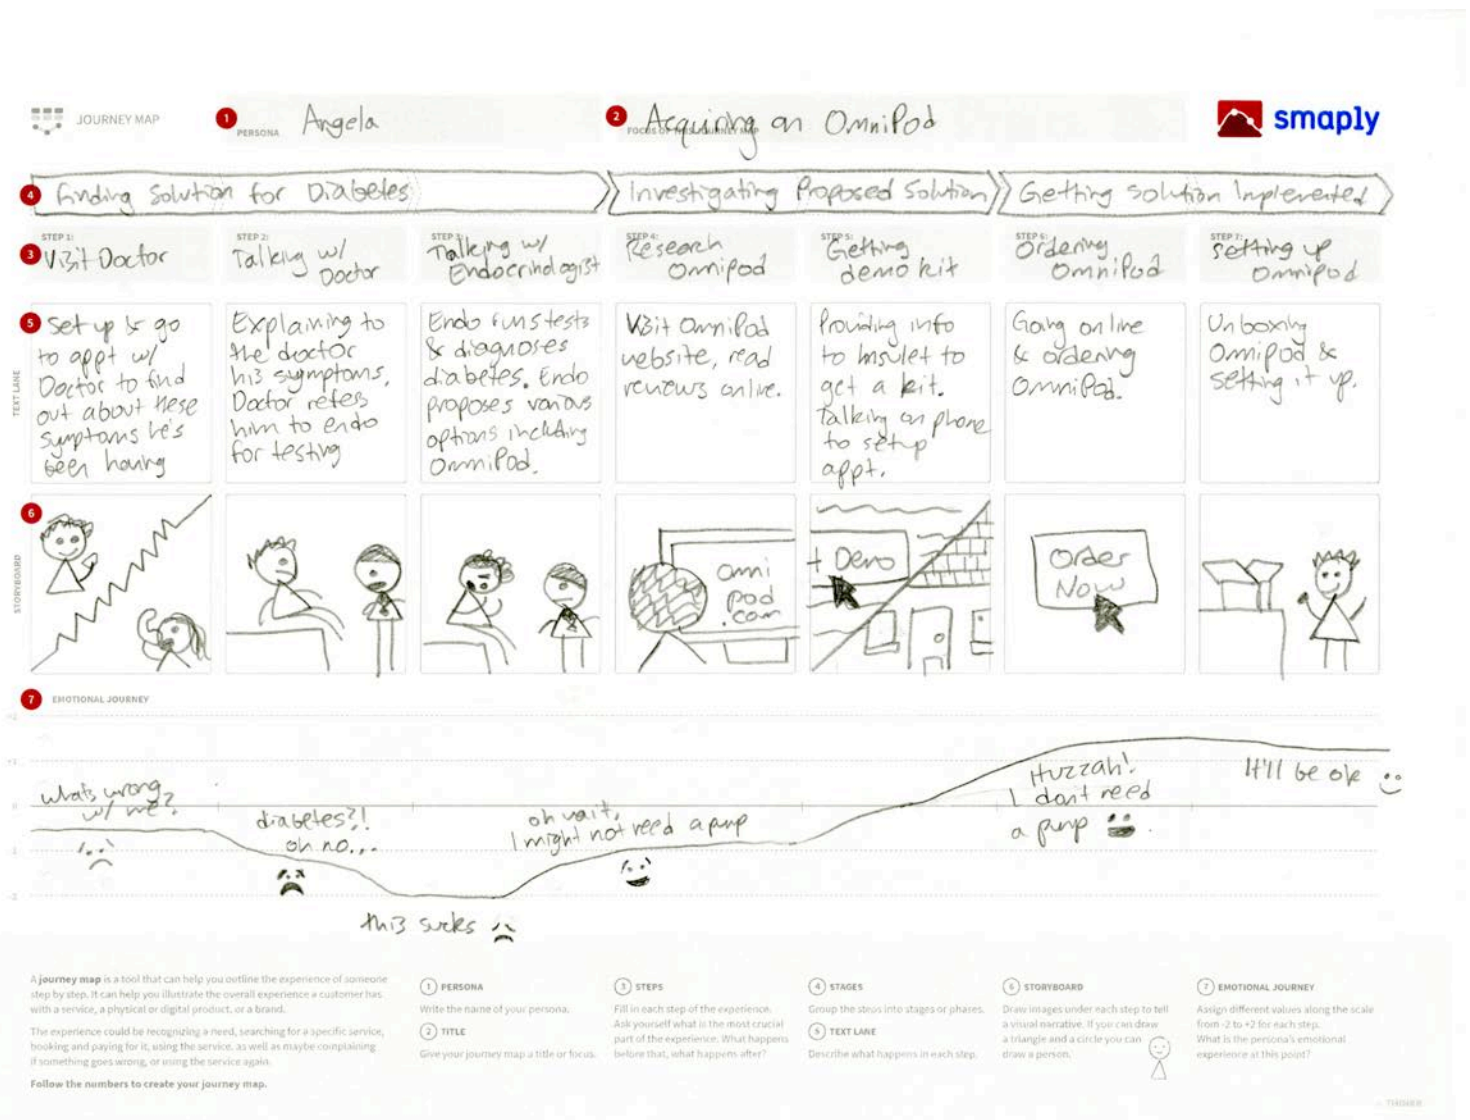 JOURNEY MAP
1
PERSONA
Angela
2
FOCUS OF THIS JOURNEY MAP
Acquiring an OmniPod
smaply
4
Finding Solution for Diabetes
Investigating Proposed Solution
Getting Solution Implemented
3
STEP 1:
Visit Doctor
STEP 2:
Talking w/
Doctor
STEP 3:
Talking w/
Endocrinologist
STEP 4:
Research
Omnipod
STEP 5:
Getting
demo kit
STEP 6:
Ordering
OmniPod
STEP 7:
Setting up
Omnipod
5
TEXT LANE
Set up & go
to appt w/
Doctor to find
out about these
symptoms he's
been having
Explaining to
the doctor
his symptoms.
Doctor refers
him to endo
for testing
Endo runs tests
& diagnoses
diabetes. Endo
proposes various
options including
OmniPod.
Visit OmniPod
website, read
reviews online.
Providing info
to Insulet to
get a kit.
Talking on phone
to setup
appt.
Going online
& ordering
OmniPod.
Unboxing
Omnipod &
setting it up.
6
STORYBOARD
Omni
pod
.com
t Demo
Order
Now
7
EMOTIONAL JOURNEY
+2
+1
0
-1
-2
whats wrong
w/ me?
diabetes?!
oh no...
this sucks
oh wait,
I might not need a pump
Huzzah!
I don't need
a pump
It'll be ok
A journey map is a tool that can help you outline the experience of someone
step by step. It can help you illustrate the overall experience a customer has
with a service, a physical or digital product, or a brand.
The experience could be recognizing a need, searching for a specific service,
booking and paying for it, using the service, as well as maybe complaining
if something goes wrong, or using the service again.
Follow the numbers to create your journey map.
1 PERSONA
Write the name of your persona.
2 TITLE
Give your journey map a title or focus.
3 STEPS
Fill in each step of the experience.
Ask yourself what is the most crucial
part of the experience. What happens
before that, what happens after?
4 STAGES
Group the steps into stages or phases.
5 TEXT LANE
Describe what happens in each step.
6 STORYBOARD
Draw images under each step to tell
a visual narrative. If you can draw
a triangle and a circle you can
draw a person.
7 EMOTIONAL JOURNEY
Assign different values along the scale
from -2 to +2 for each step.
What is the persona's emotional
experience at this point?